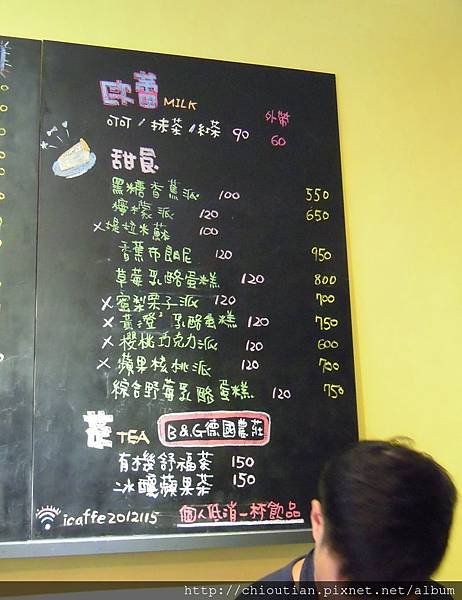 歐蕾 MILK
外帶
可可/抹茶/紅茶 90 60
甜食
黑糖香蕉派 100 550
檸檬派 120 650
X堤拉米蘇 100
香蕉布朗尼 120 950
草莓乳酪蛋糕 120 800
X蜜梨栗子派 120 700
X黃澄²乳酪蛋糕 120 750
X櫻桃巧克力派 120 600
X蘋果核桃派 120 700
綜合野莓乳酪蛋糕 120 750
茶 TEA B&G德國農莊
有機舒福茶 150
冰釀蘋果茶 150
icaffe2012115 個人低消一杯飲品
http://chioutian.pixnet.net/album